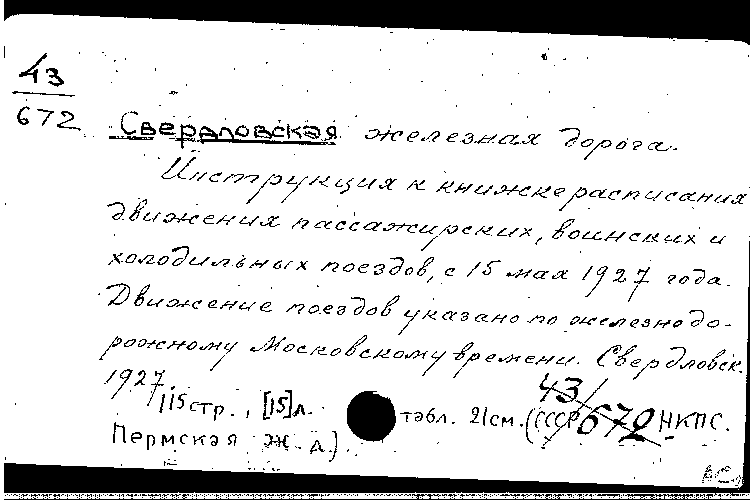 43
672
Свердловская железная дорога.
Инструкция к книжке расписания
движения пассажирских, воинских и
холодильных поездов, с 15 мая 1927 года.
Движение поездов указано по железнодо-
рожному Московскому времени. Свердловск.
1927
115 стр., [15] л. табл. 21 см. (СССР НКПС.
43/672
Пермская ж. д.).